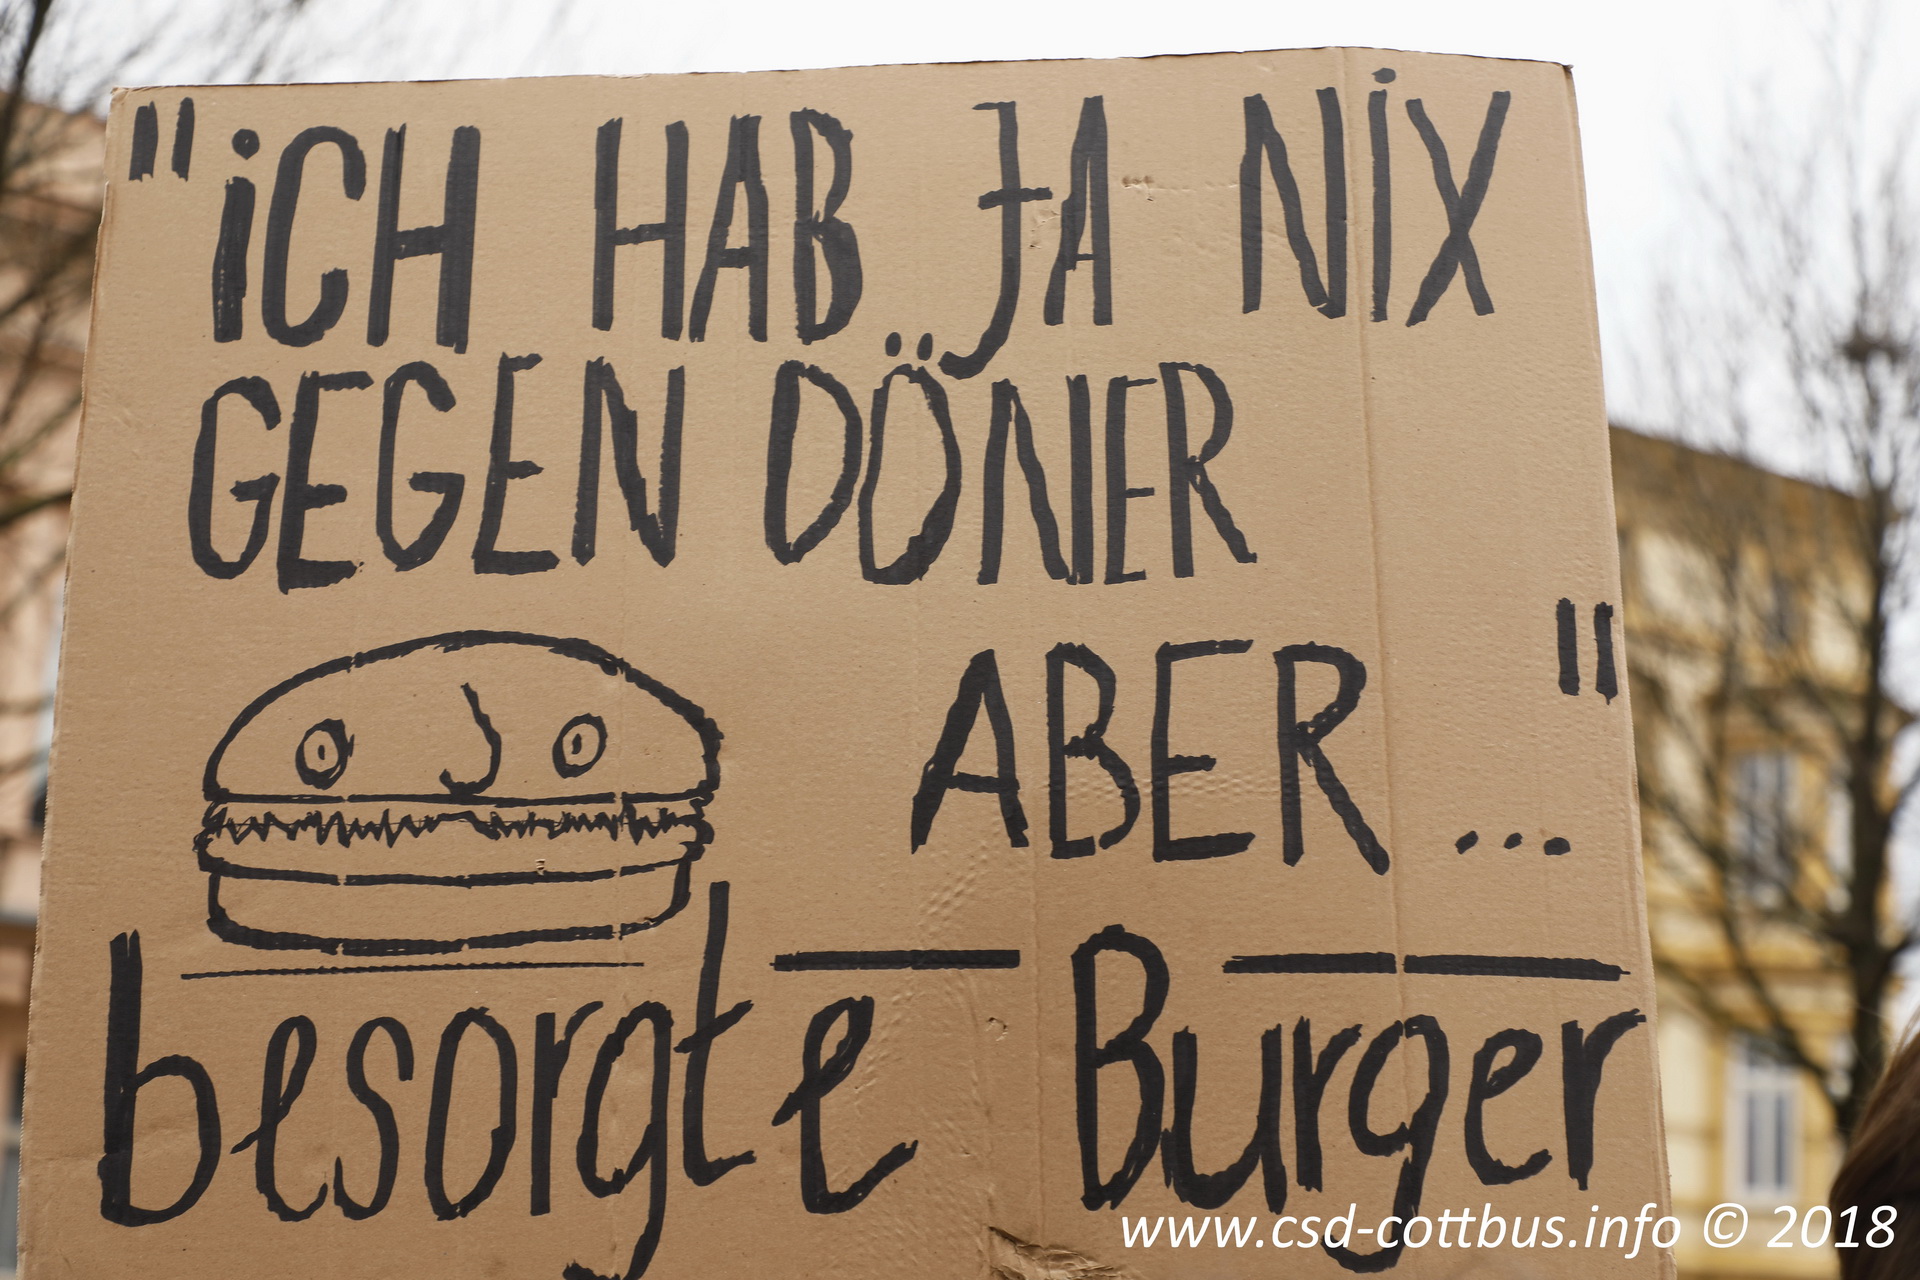 "iCH HAB JA NiX
GEGEN DÖNER
ABER ... "
besorgte Burger
www.csd-cottbus.info © 2018